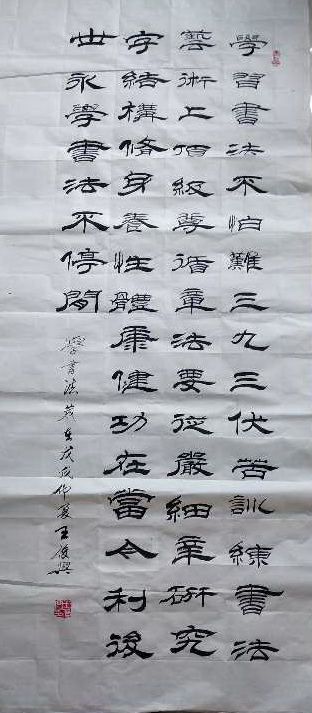 學習書法不怕難三九三伏苦訓練書法
藝術上頂級學循章法要從嚴細研究
字結構脩身養性體康健功在當今利後
世永學書法不停閒
學書法戊戌仲夏王俊興